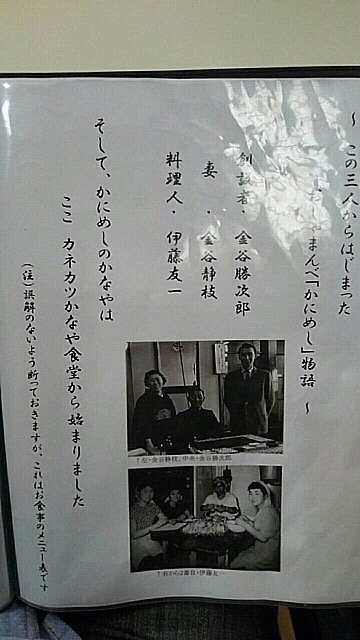 ～ この三人からはじまった
おしゃまんべ「かにめし」物語 ～
創設者・金谷勝次郎
妻・金谷静枝
料理人・伊藤友一
そして、かにめしのかなやは
ここ カネカツかなや食堂から始まりました
(注)誤解のないよう断っておきますが、これはお食事のメニュー表です
↑左・金谷静枝、中央・金谷勝次郎
↑右から2番目・伊藤友一